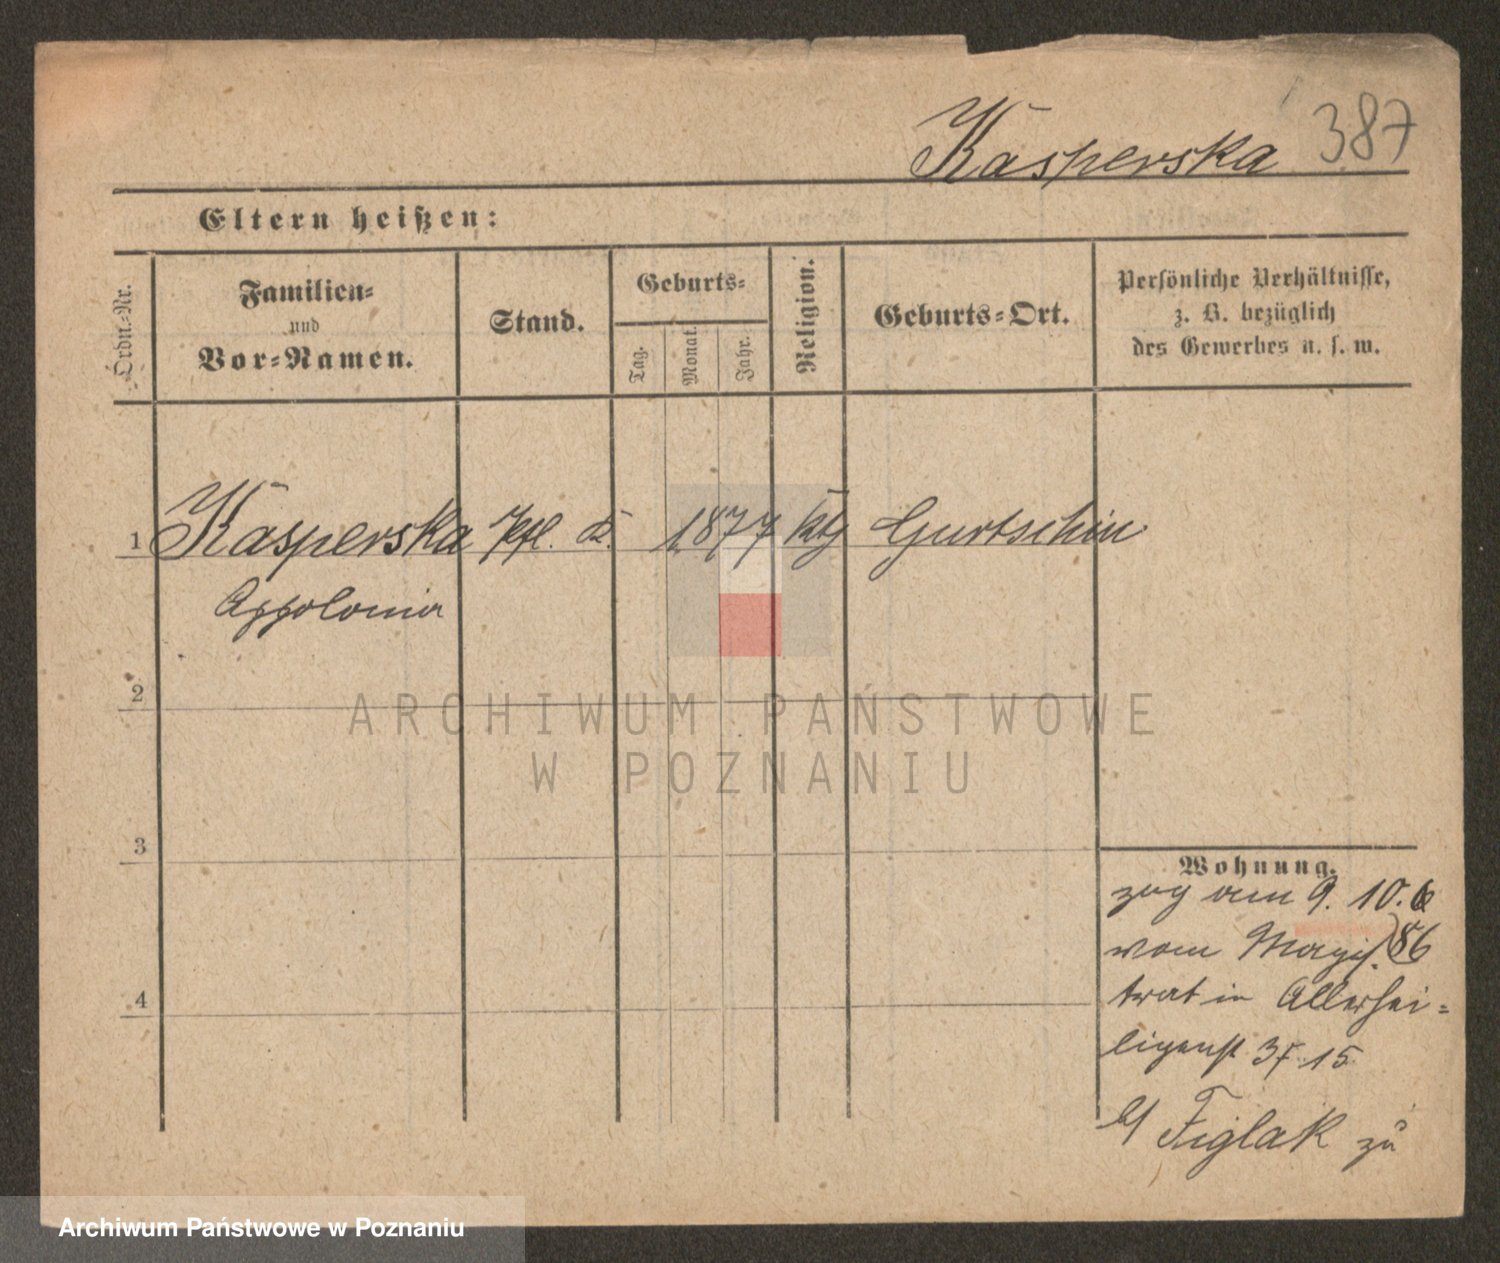 Kasperska 387
Eltern heißen:
Ordn.-Nr.
Familien-
und
Vor-Namen.
Stand.
Geburts-
Tag.
Monat.
Jahr.
Religion.
Geburts-Ort.
Persönliche Verhältnisse,
z. B. bezüglich
des Gewerbes u. s. w.
1 Kasperska Pfl. K. 1877 ktg Gurtschin
Appolonia
2
ARCHIWUM PAŃSTWOWE
W POZNANIU
3
Wohnung.
zog am 9. 10.
86
vom Magis
trat in Allerhei-
ligenst 3 15
b/ Figlak zu
4
Archiwum Państwowe w Poznaniu